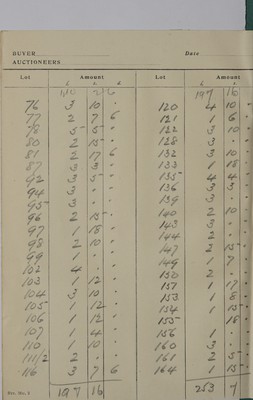 BUYER
AUCTIONEERS
Lot Amount
£ s. d.
76 3 10 "
77 2 7 6
78 5 5 "
80 2 15 "
81 2 17 6
87 3 3 "
92 3 5 "
94 3 " "
95 3 " "
96 2 15 "
97 1 18 "
98 2 10 "
99 1 " "
102 4 " "
103 1 12 "
104 3 10 "
105 1 12 "
106 1 12 "
107 1 4 "
110 1 10 "
111/2 2 " "
116 3 7 6
197 16
Date
Lot Amount
£ s.
197 16
120 4 10
121 1 6
122 3 10
128 3 "
132 3 10
133 1 18
135 4 4
136 3 3
139 3 "
140 2 10
143 3 "
144 2 "
147 2 15
149 1 7
150 2 "
151 1 17
153 1 8
154 1 15
155 18
156 1 "
160 3 "
161 2 5
164 1 15
253 7